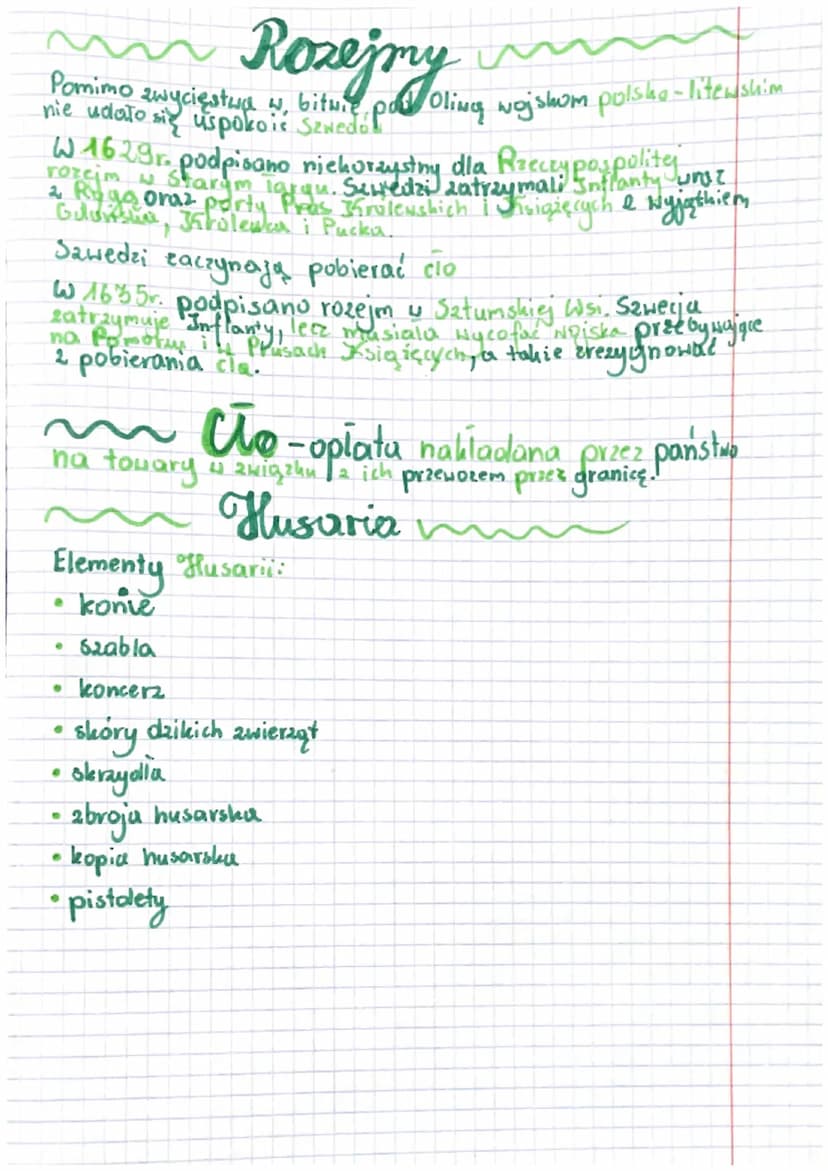 Rozejmy
Pomimo zwycięstwa w bitwie pod Oliwą wojskom polsko-litewskim
nie udało się uspokoić Szwedów
W 1629r. podpisano niekorzystny dla Rzeczypospolitej
rozejm w Starym Targu. Szwedzi zatrzymali Inflanty wraz
z Rygą oraz porty Prus Królewskich i Książęcych z wyjątkiem
Gdańska, Królewca i Pucka.
Szwedzi zaczynają pobierać cło
W 1635r. podpisano rozejm w Sztumskiej Wsi. Szwecja
zatrzymuje Inflanty, lecz musiała wycofać wojska przebywające
na Pomorzu i w Prusach Książęcych, a także zrezygnować
z pobierania cła.
Cło - opłata nakładana przez państwo
na towary w związku z ich przewozem przez granicę.
Husaria
Elementy Husarii:
• konie
• szabla
• koncerz
• skóry dzikich zwierząt
• skrzydła
• zbroja husarska
• kopia husarska
• pistolety